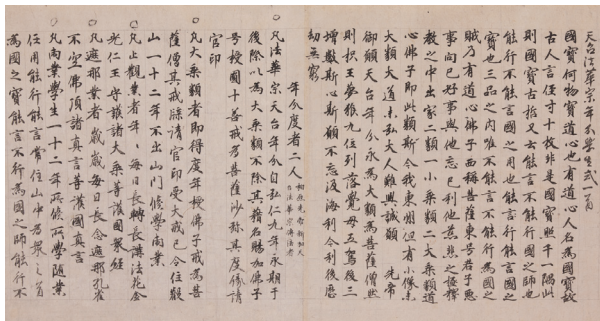 天台法華宗年分學生式一首
國寶何物寶道心也有道心人名為國寶故
古人言徑寸十枚非是國寶照千一隅此
則國寶古哲又云能言不能行國之師也
能行不能言國之用也能行能言國之
寶也三品之内唯不能言不能行為國之
賊乃有道心佛子西稱菩薩東号君子惡
事向己好事與他忘己利他慈悲之極釋
教之中出家二類一小乘類二大乘類道
心佛子即此類斯今我東州但有小像未
大類大道未弘大人難興誠願 先帝
御願天台年分永為大類為菩薩僧然
則枳王夢猴九位列落覺母五駕後三
增數斯心斯願不忘汲海利今利後歷
劫無窮
年分度者二人 柏原先帝新加天台法華宗傳法者
○凡法華宗天台年分自弘仁九年永期于
後際以為大乘類不除其籍名賜加佛子
号授圓十善戒為菩薩沙弥其度縁請
官印
○凡大乘類者即得度年授佛子戒為菩
薩僧其戒牒請官印受大戒已令住叡
山一十二年不出山門修學兩業
○凡止觀業者年々毎日長轉長講法花金
光仁王守護諸大乘等護國衆經
○凡遮那業者歳々毎日長念遮那孔雀
不空佛頂諸真言等護國真言
○凡兩業學生一十二年所修所學随業
任用能行能言常住山中為衆之首
為國之寶能言不行為國之師能行不